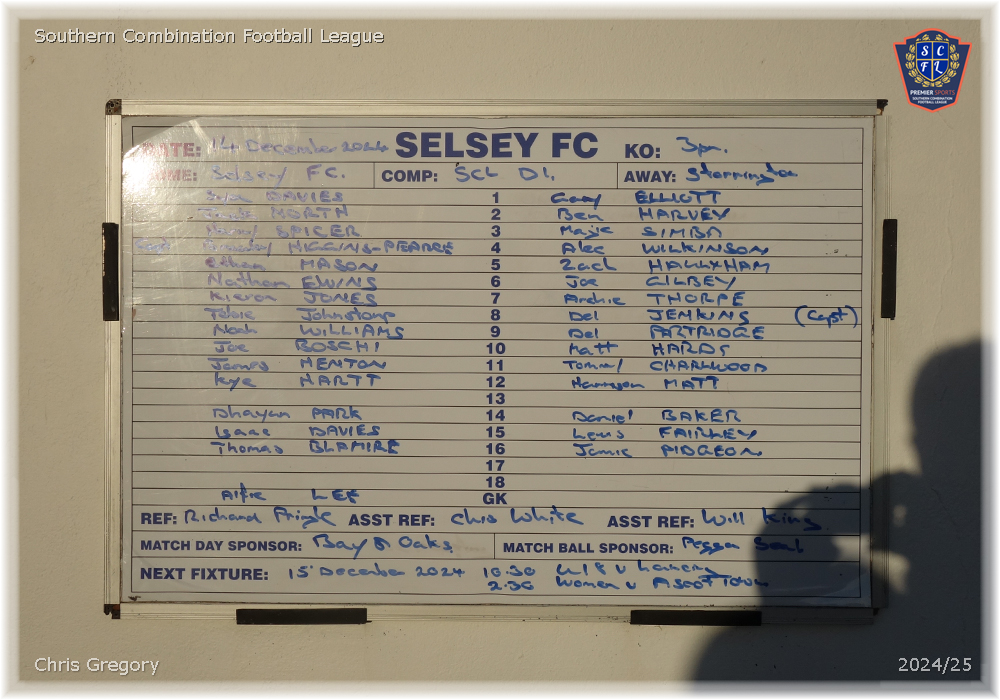 Southern Combination Football League
S C
F L
PREMIER SPORTS
SOUTHERN COMBINATION
FOOTBALL LEAGUE
DATE: 14 December 2024 SELSEY FC KO: 3pm.
HOME: Selsey FC. COMP: SCL D1. AWAY: Storrington
DAVIES 1 ELLIOTT
NORTH 2 Ben HARVEY
SPICER 3 SIMBA
Capt Bradley HIGGINS-PEARCE 4 Alec WILKINSON
Ethan MASON 5 Zach
Nathan EWINS 6 Joe GILBEY
Kieron JONES 7 Archie THORPE
Johnstone 8 Del JENKINS (Capt)
Noah WILLIAMS 9 Del PARTRIDGE
Joe BOSCHI 10 Matt HARDS
James HENTON 11 Tommy CHARLWOOD
Kye HARTT 12 Harrison MATT
13
Dhayan PARK 14 Daniel BAKER
Isaac DAVIES 15 Lewis FAIRLEY
Thomas BLAMIRE 16 Jamie PIDGEON
17
18
Alfie LEE GK
REF: Richard Pringle ASST REF: Chis White ASST REF: Will King
MATCH DAY SPONSOR: Bay & Oaks MATCH BALL SPONSOR:
NEXT FIXTURE: 15 December 2024 10:30 U18 v Lancing
2:30 Women v Ascot Town
Chris Gregory
2024/25